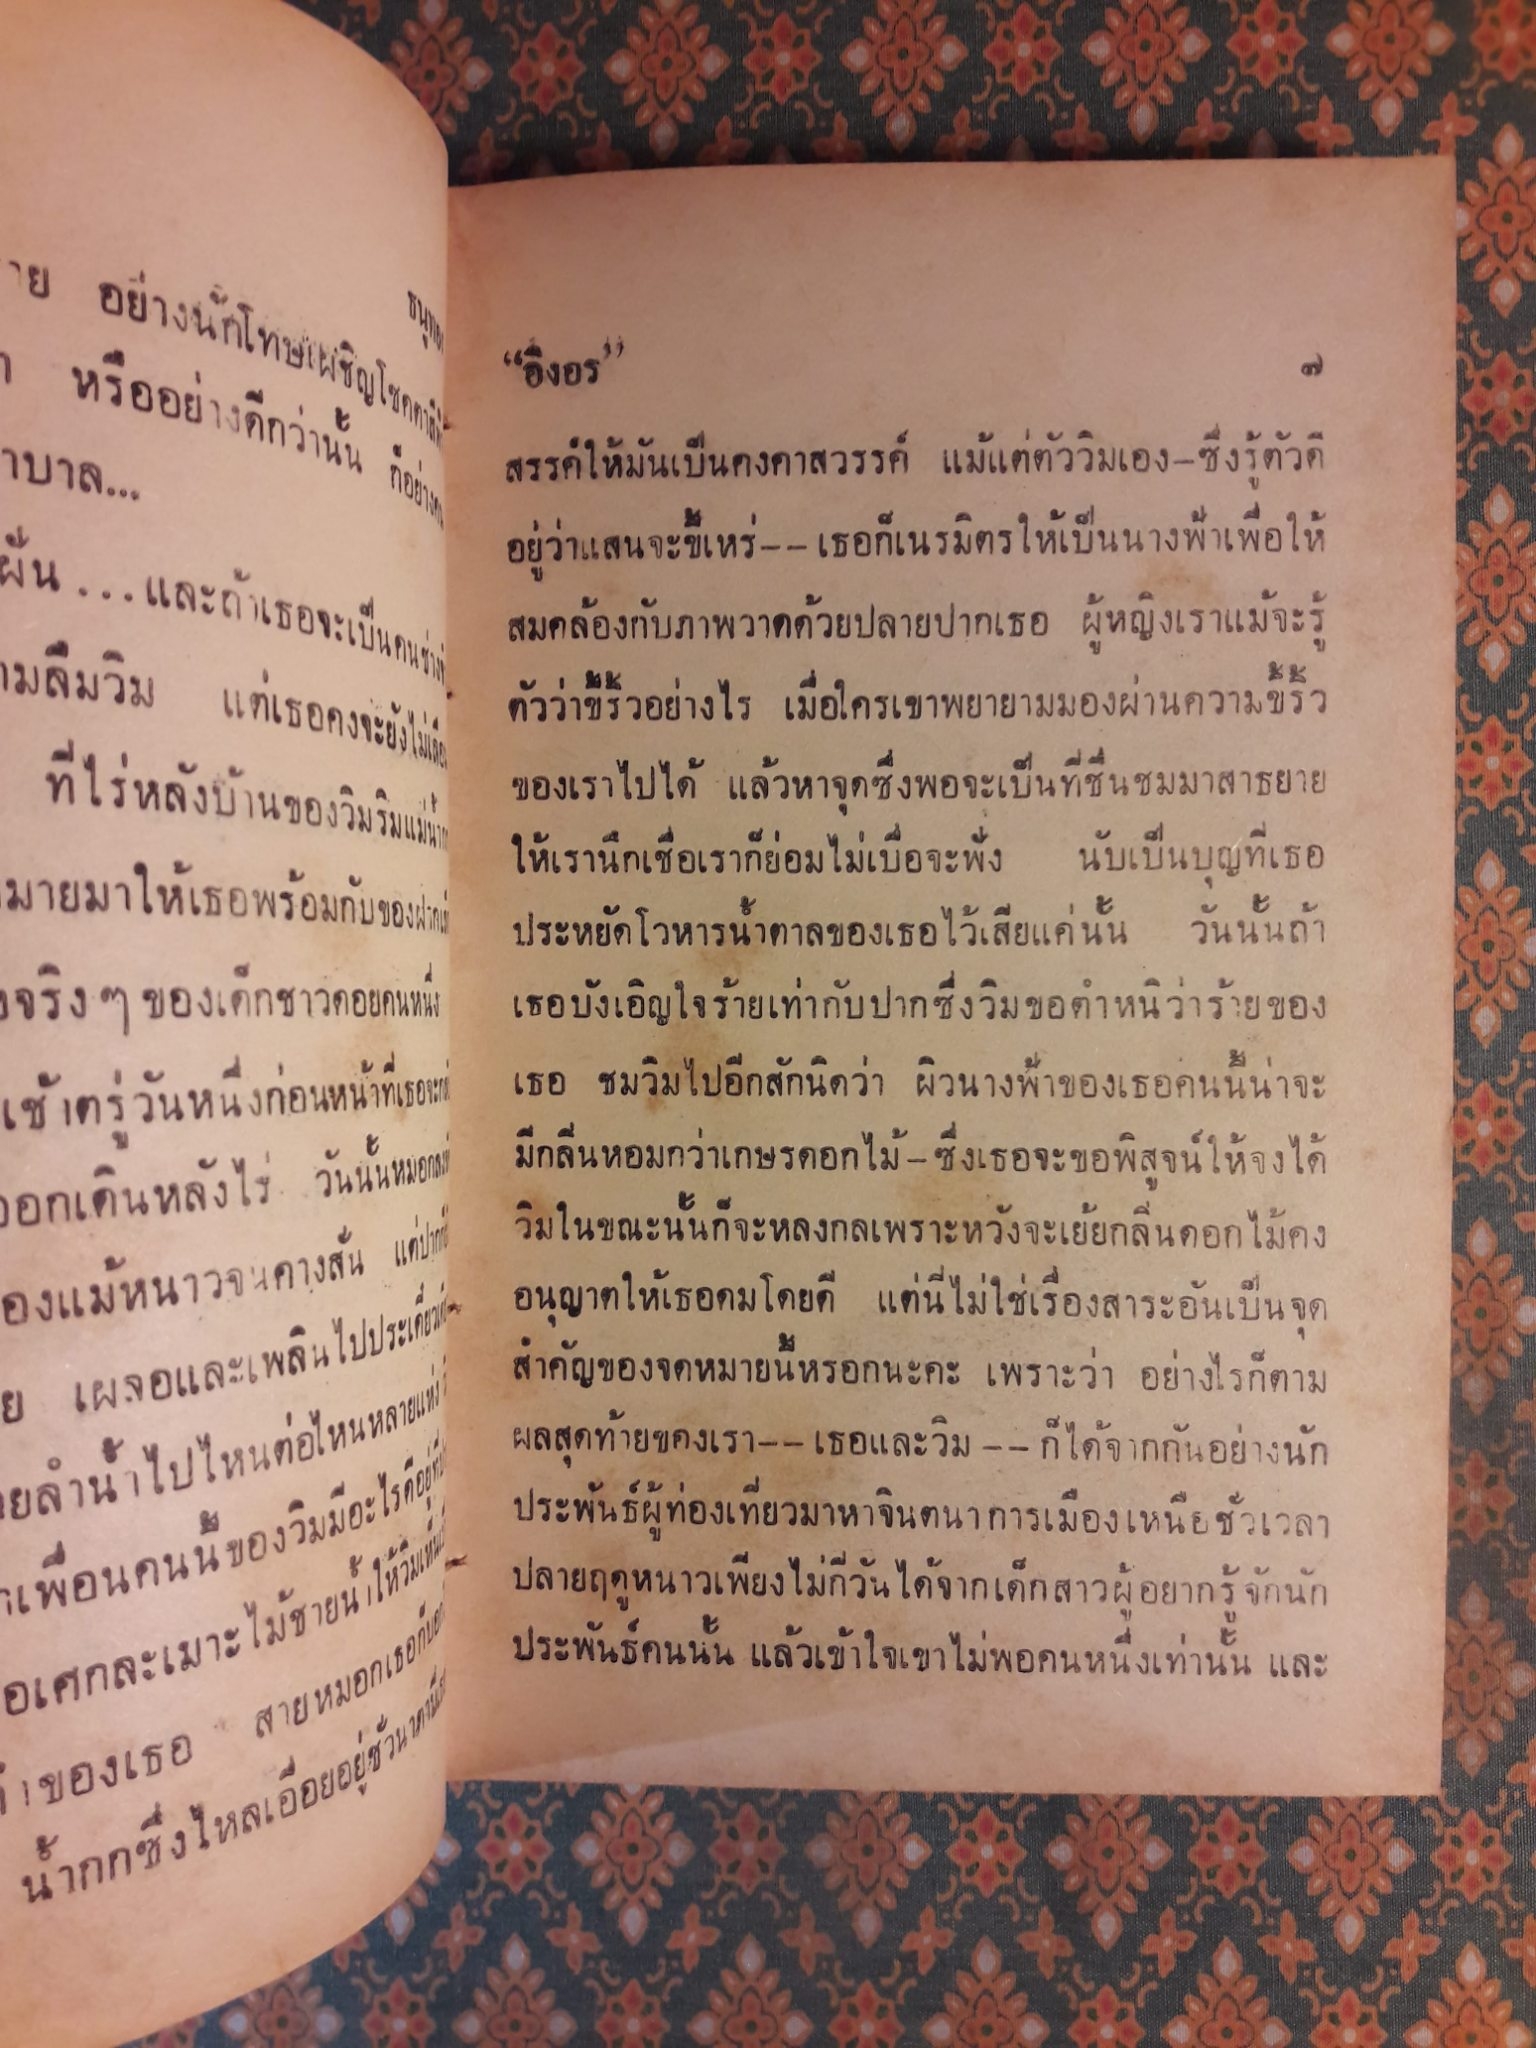 ธนูทอง
าย อย่างนักโทษเผชิญโชคตาลี
า หรืออย่างดีกว่านั้น ก็อย่างคน
าบาล...
ผัน ...และถ้าเธอจะเป็นคนช่าง
ามลืมวิม แต่เธอคงจะยังไม่เลือ
ที่ไร่หลังบ้านของวิมริมแม่น้ำก
หมายมาให้เธอพร้อมกับของฝาก
งจริงๆ ของเด็กชาวดอยคนหนึ่ง
เช้าตรู่วันหนึ่งก่อนหน้าที่เธอจะก
ออกเดินหลังไร่ วันนั้นหมอกลง
องแม้หนาวจนคางสั่น แต่ปาก
ย เผลอและเพลินไปประเดี๋ยว
วยลำน้ำไปไหนต่อไหนหลายแห่ง
าเพื่อนคนนี้ของวิมมีอะไรดีอยู่
อเศกละเมาะไม้ชายน้ำให้วิมเห็น
ำของเธอ สายหมอกเธอก็บอก
น้ำกกซึ่งไหลเอื่อยอยู่ชั่วนาตาปี
“อิงอร” ๗
สรรค์ให้มันเป็นคงคาสวรรค์ แม้แต่ตัววิมเอง-ซึ่งรู้ตัวดี
อยู่ว่าแสนจะขี้เหร่--เธอก็เนรมิตรให้เป็นนางฟ้าเพื่อให้
สมคล้องกับภาพวาดด้วยปลายปากเธอ ผู้หญิงเราแม้จะรู้
ตัวว่าขี้ริ้วอย่างไร เมื่อใครเขาพยายามมองผ่านความขี้ริ้ว
ของเราไปได้ แล้วหาจุดซึ่งพอจะเป็นที่ชื่นชมมาสาธยาย
ให้เรานึกเชื่อเราก็ย่อมไม่เบื่อจะฟัง นับเป็นบุญที่เธอ
ประหยัดโวหารน้ำตาลของเธอไว้เสียแค่นั้น วันนั้นถ้า
เธอบังเอิญใจร้ายเท่ากับปากซึ่งวิมขอตำหนิว่าร้ายของ
เธอ ชมวิมไปอีกสักนิดว่า ผิวนางฟ้าของเธอคนนี้น่าจะ
มีกลิ่นหอมกว่าเกษรดอกไม้-ซึ่งเธอจะขอพิสูจน์ให้จงได้
วิมในขณะนั้นก็จะหลงกลเพราะหวังจะเย้ยกลิ่นดอกไม้คง
อนุญาตให้เธอดมโดยดี แต่นี่ไม่ใช่เรื่องสาระอันเป็นจุด
สำคัญของจดหมายนี้หรอกนะคะ เพราะว่า อย่างไรก็ตาม
ผลสุดท้ายของเรา--เธอและวิม--ก็ได้จากกันอย่างนัก
ประพันธ์ผู้ท่องเที่ยวมาหาจินตนาการเมืองเหนือชั่วเวลา
ปลายฤดูหนาวเพียงไม่กี่วันได้จากเด็กสาวผู้อยากรู้จักนัก
ประพันธ์คนนั้น แล้วเข้าใจเขาไม่พอคนหนึ่งเท่านั้น และ